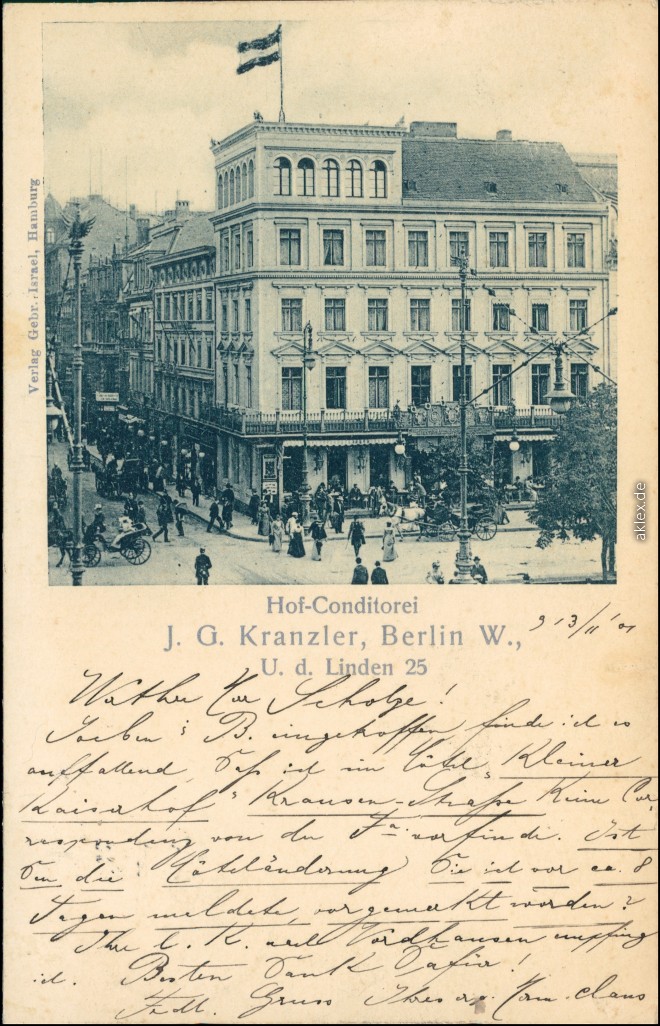 Verlag Gebr. Israel, Hamburg
Hof-Conditorei
J. G. Kranzler, Berlin W.,
U. d. Linden 25
13/11 01
Werther Herr Scholze!
Soeben i. B. eingetroffen, finde ich es
auffallend, daß ich im Hôtel "Kleiner
Kaiserhof" Krausen-Straße keine Cor-
respondenz von der Fa. vorfinde. Ist
denn die Hôteländerung die ich vor ca. 8
Tagen meldete, vorgemerkt worden?
Ihre l. K. nach Nordhausen empfing
ich. Besten Dank dafür!
Fedl. Gruss Ihres
aklex.de